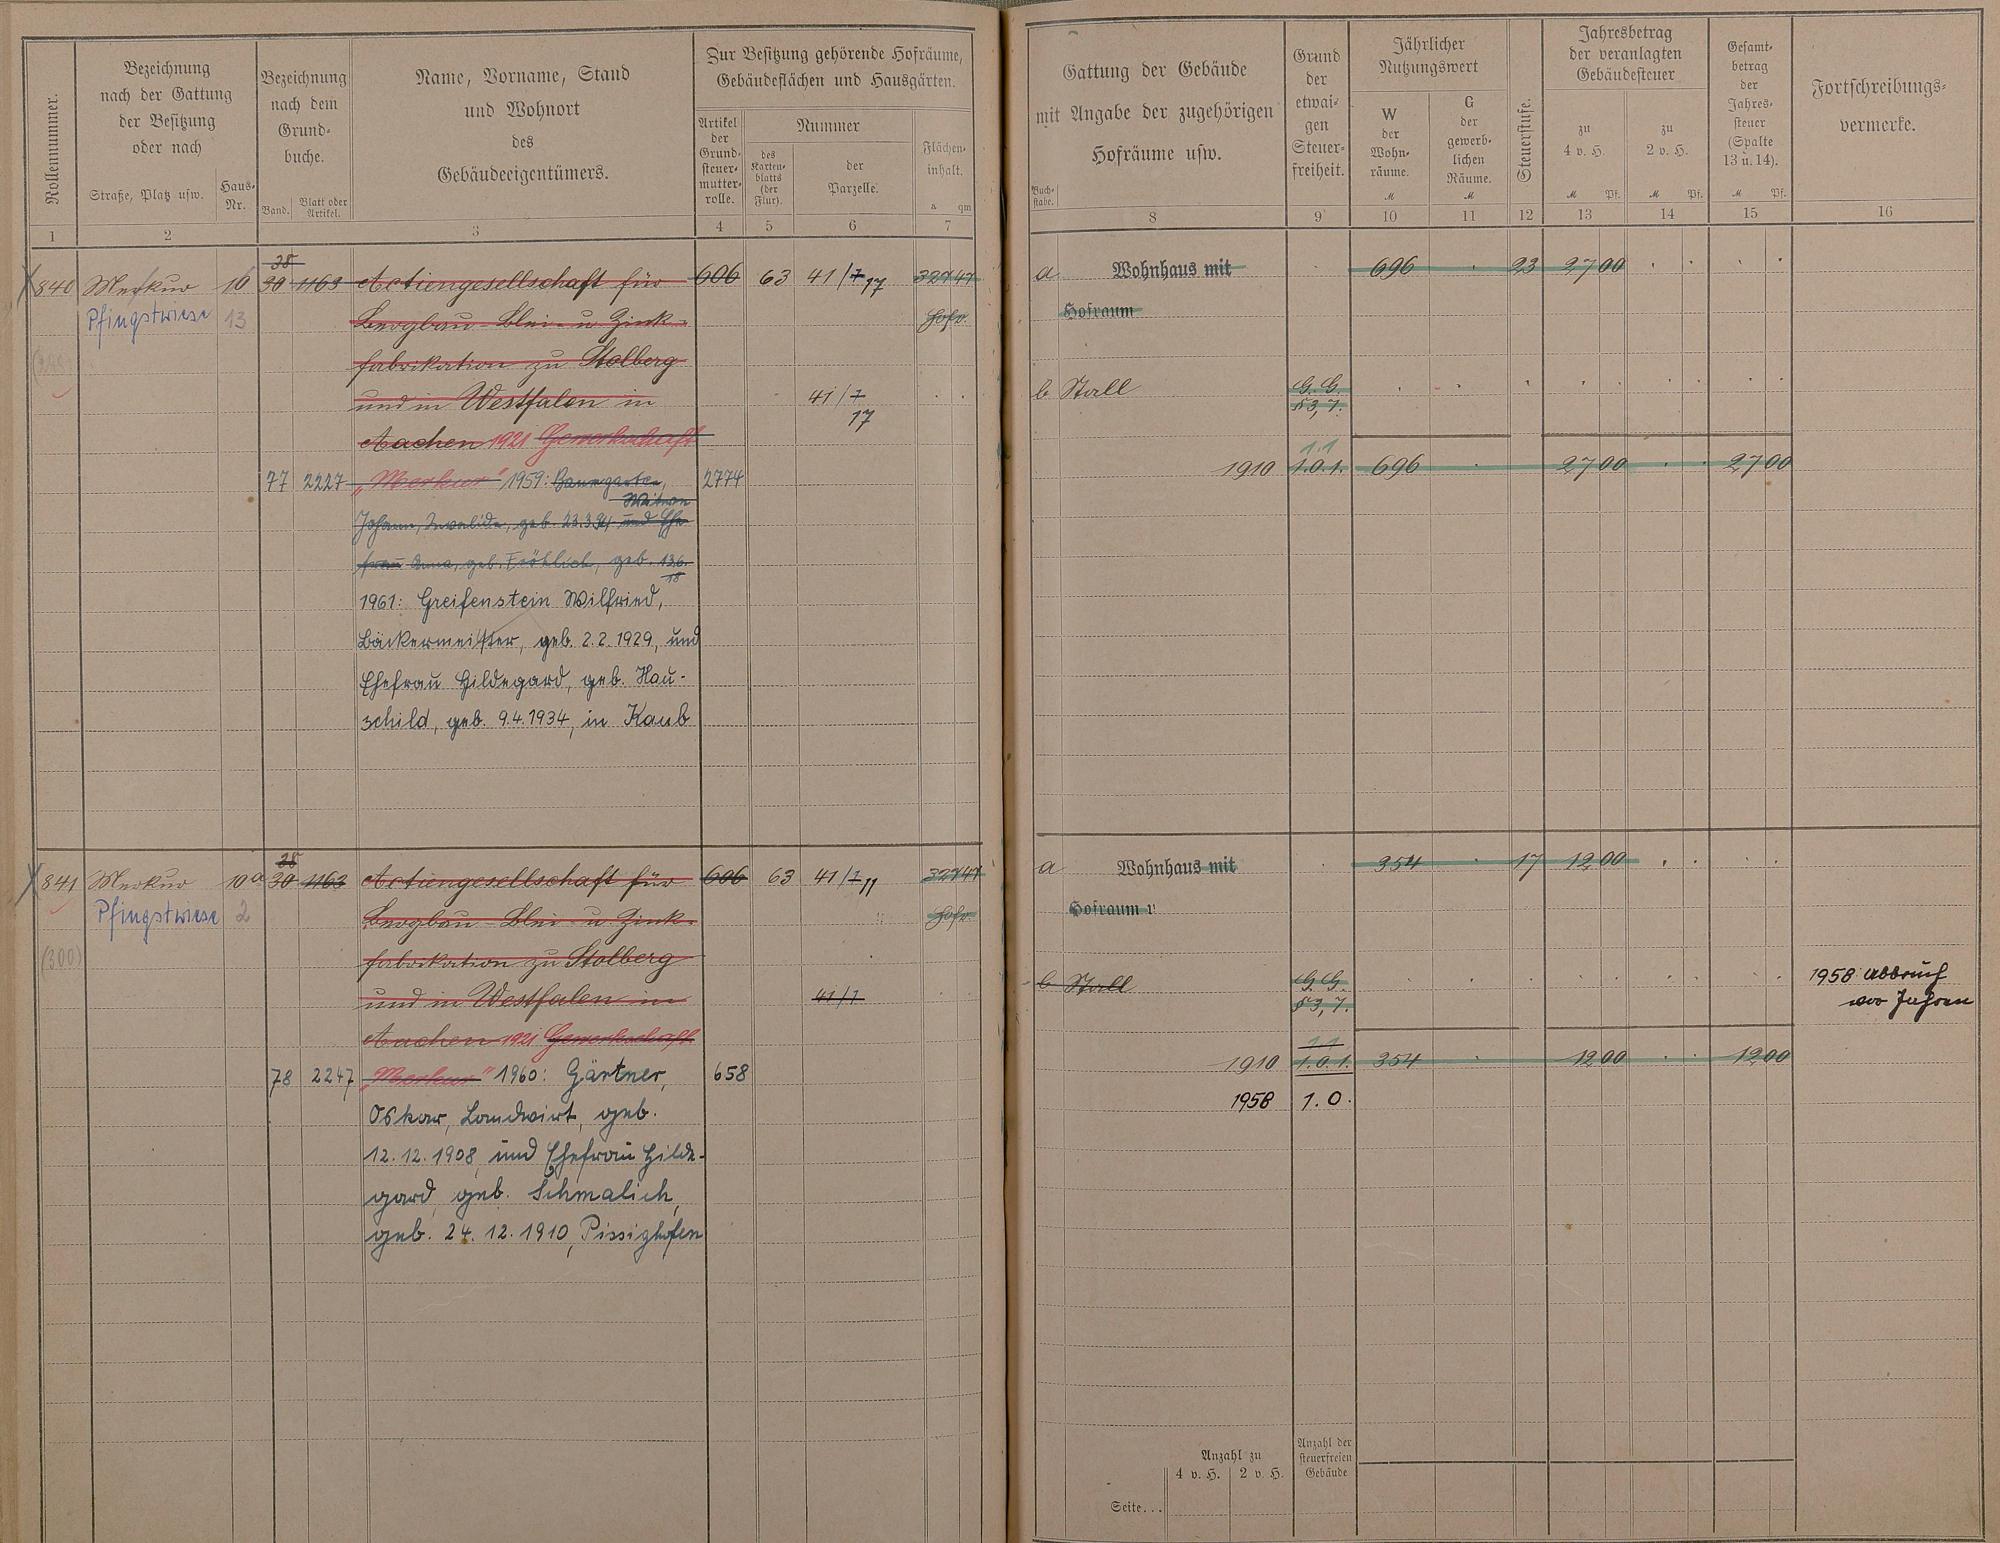 Rollennummer.
Bezeichnung
nach der Gattung
der Besitzung
oder nach
Straße, Platz usw.
Haus-
Nr.
Bezeichnung
nach dem
Grund-
buche.
Band.
Blatt oder
Artikel.
Name, Vorname, Stand
und Wohnort
des
Gebäudeeigentümers.
Zur Besitzung gehörende Hofräume,
Gebäudeflächen und Hausgärten.
Artikel
der
Grund-
steuer-
mutter-
rolle.
Nummer
des
Karten-
blatts
(der
Flur).
der
Parzelle.
Flächen-
inhalt.
a qm
1 2 3 4 5 6 7
38
840 Merkur 10 30 1163 Actiengesellschaft für 606 63 41/7 17 32747
Pfingstwiese 13 Bergbau- Blei- u. Zink- Hofr.
fabrikation zu Stolberg
und in Westfalen in 41/7
17
Aachen 1921 Gewerkschaft
77 2227 „Merkur" 1959: Baumgarten, 2774
Witwer
Johann, Invalide, geb. 23.3.94 und Ehe
frau Anna, geb. Fröhlich, geb. 13.6.
18
1961: Greifenstein Wilfried,
Bäckermeister, geb. 2.2.1929, und
Ehefrau Hildegard, geb. Hau-
schild, geb. 9.4.1934, in Kaub
38
841 Merkur 10a 30 1163 Actiengesellschaft für 606 63 41/7 11 32747
Pfingstwiese 2 Bergbau- Blei- u. Zink- Hofr.
(300) fabrikation zu Stolberg
und in Westfalen in 41/7
Aachen 1921 Gewerkschaft
78 2247 „Merkur" 1960: Gärtner, 658
Oskar, Landwirt, geb.
12.12.1908, und Ehefrau Hilde-
gard, geb. Schmalich,
geb. 24.12.1910, Pissighofen
Gattung der Gebäude
mit Angabe der zugehörigen
Hofräume usw.
Buch-
stabe.
Grund
der
etwai-
gen
Steuer-
freiheit.
Jährlicher
Nutzungswert
W
der
Wohn-
räume.
M
G
der
gewerb-
lichen
Räume.
M
Steuerstufe.
Jahresbetrag
der veranlagten
Gebäudesteuer
zu
4 v. H.
M Pf.
zu
2 v. H.
M Pf.
Gesamt-
betrag
der
Jahres-
steuer
(Spalte
13 u. 14).
M Pf.
Fortschreibungs-
vermerke.
8 9 10 11 12 13 14 15 16
a Wohnhaus mit 696 23 27 00
Hofraum
b Stall G. G.
§ 3, 7.
1.1
1910 1.0.1. 696 27 00 27 00
a Wohnhaus mit 354 17 12 00
Hofraum
b Stall G. G. 1958: Abbruch
§ 3, 7. vor Jahren
1.1
1910 1.0.1. 354 12 00 12 00
1958 1.0.
Anzahl zu
4 v. H. 2 v. H.
Anzahl der
steuerfreien
Gebäude
Seite...